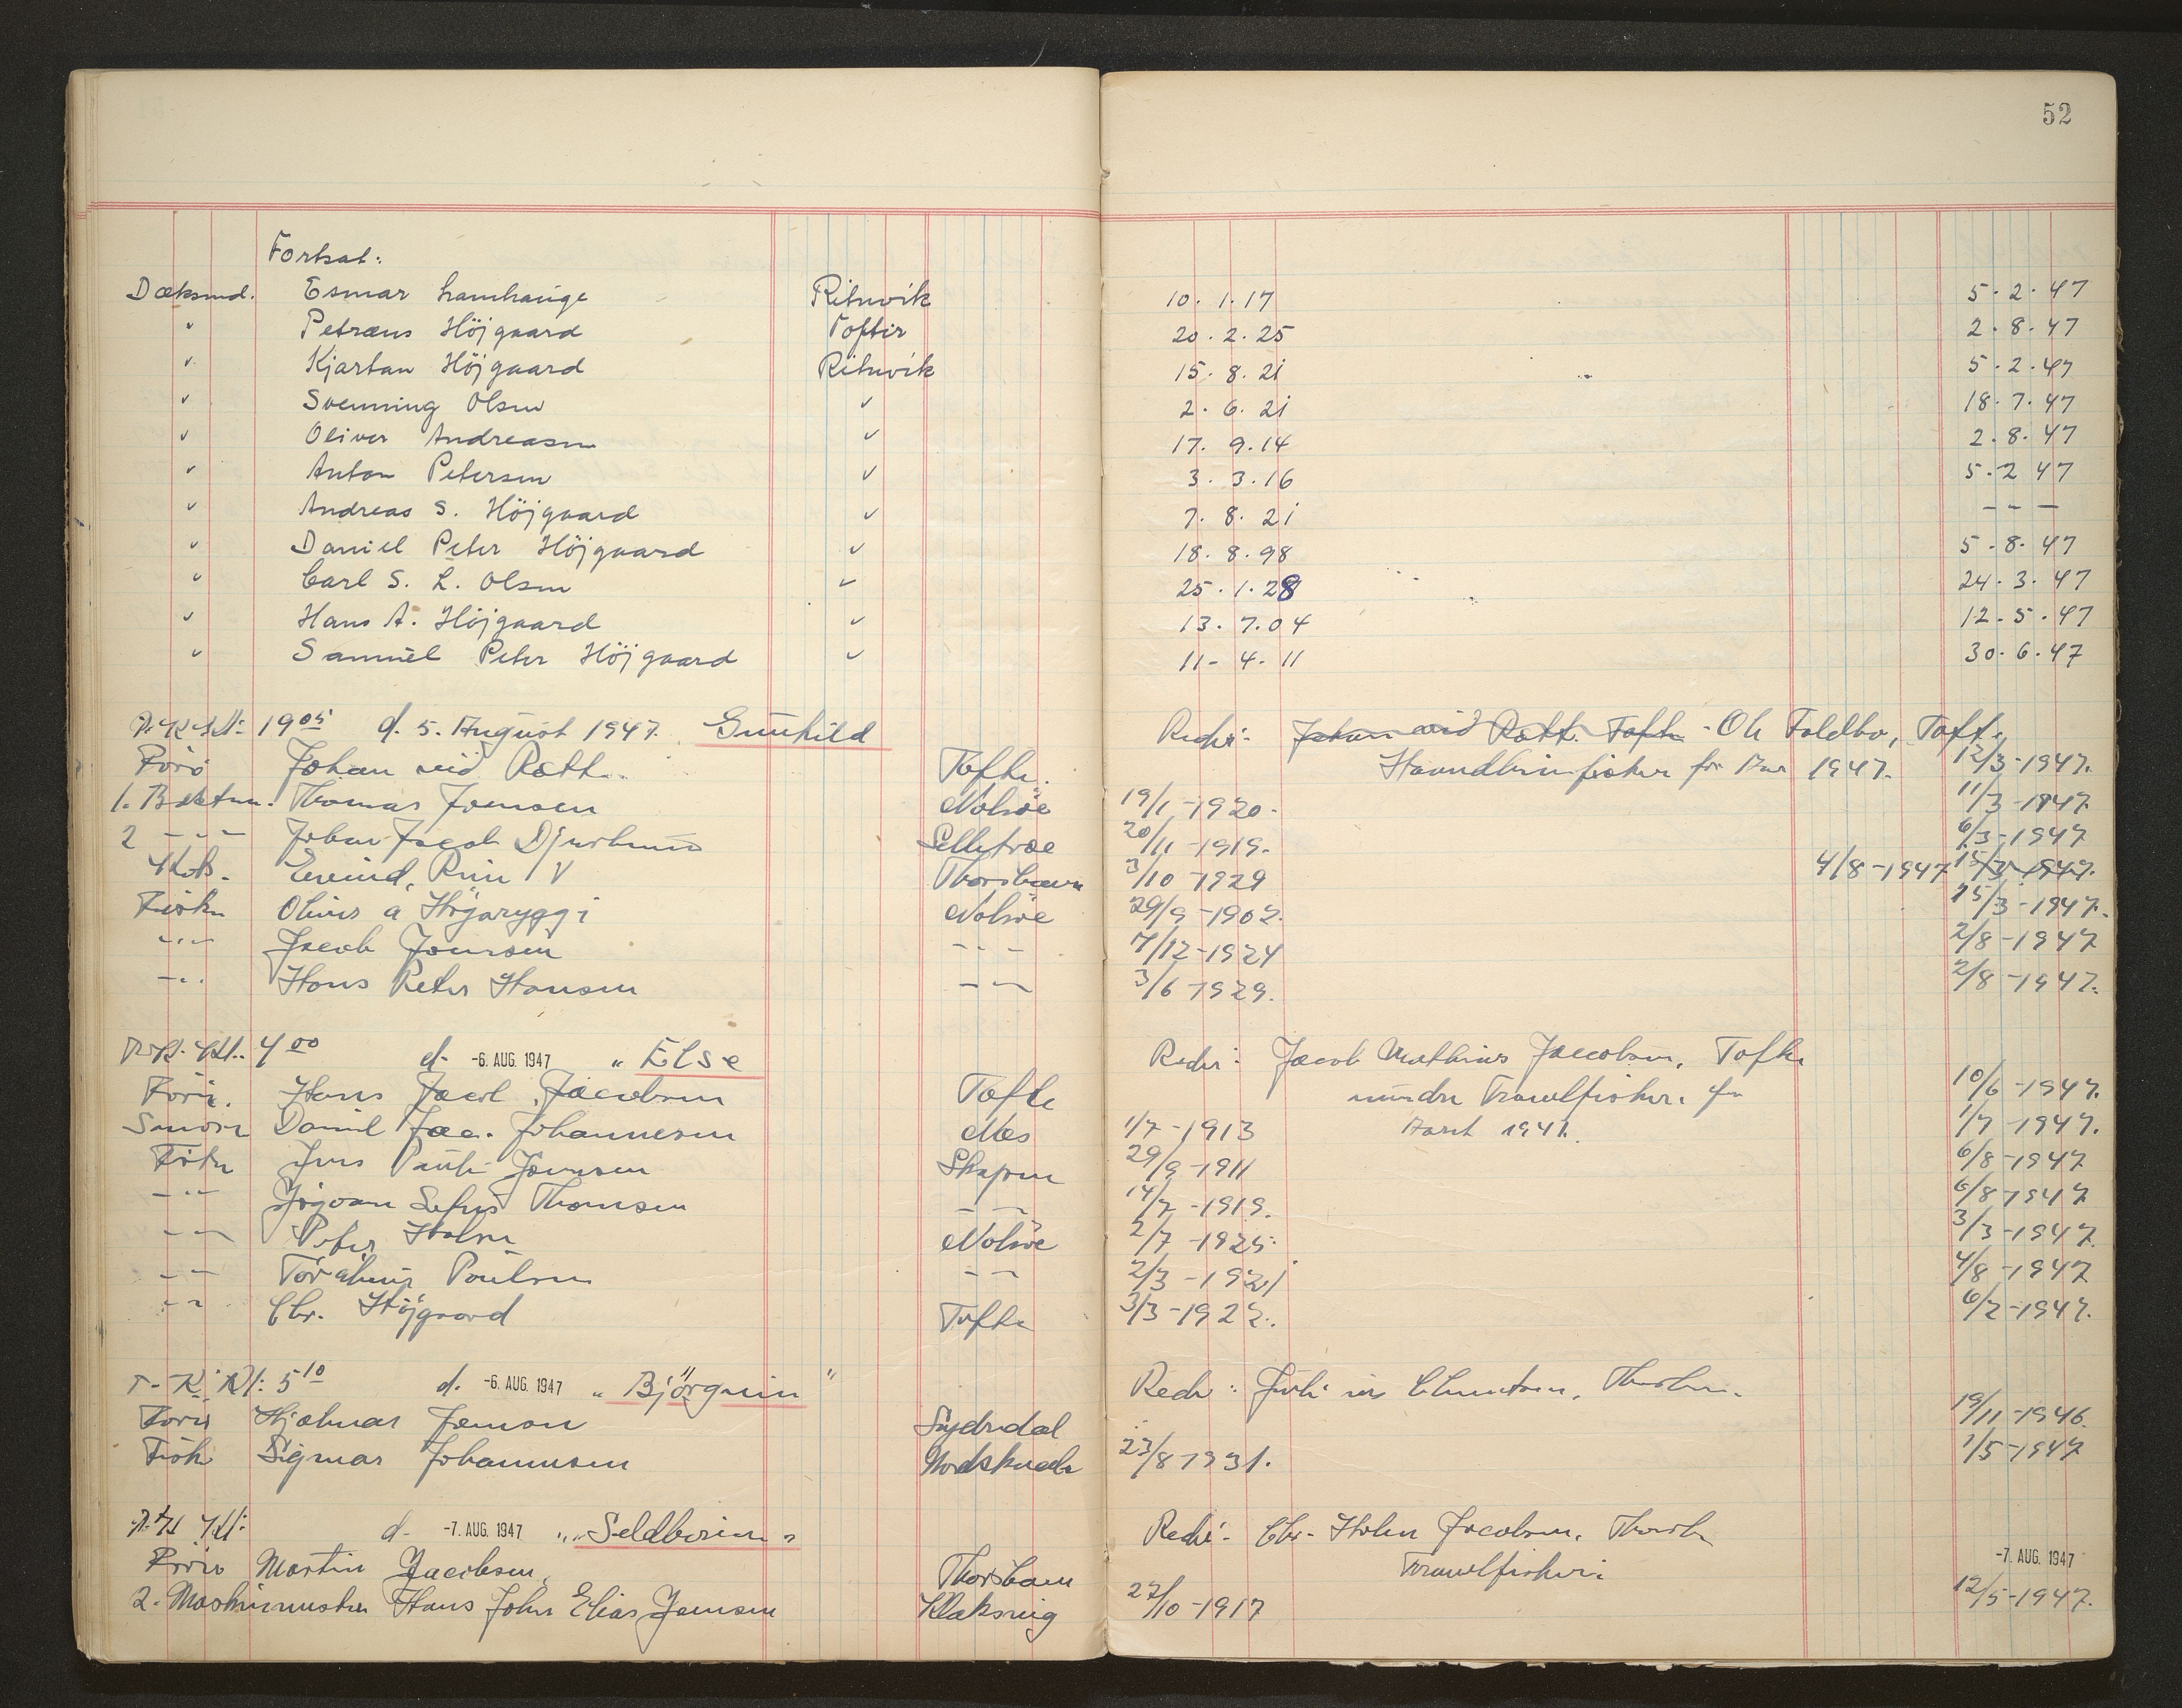 52
Fortsat:
Dæksmd. Esmar Lamhauge Rituvik 10.1.17 5.2.47
" Petræus Höjgaard Toftir 20.2.25 2.8.47
" Kjartan Höjgaard Rituvik 15.8.21 5.2.47
" Svenning Olsen " 2.6.21 18.7.47
" Oliver Andreasen " 17.9.14 2.8.47
" Anton Petersen " 3.3.16 5.2 47
" Andreas S. Höjgaard " 7.8.21 - - -
" Daniel Peter Höjgaard " 18.8.98 5.8.47
" Carl S. L. Olsen " 25.1.28 24.3.47
" Hans A. Höjgaard " 13.7.04 12.5.47
" Samuel Peter Höjgaard " 11-4-11 30.6.47
19 05 d. 5. August 1947. Gunhild Reder: Johan við Rætt. Tofte - Ole Foldbo, Tofte
Förer Johan við Rætt. Tofte. for Aar 1947. 12/3-1947.
1. Bestm. Thomas Joensen Nolsöe 19/1-1920. 11/3-1947.
2 - - - Johan Jacob Djurhuus Selletræ 20/11-1919. 6/3-1947
Kok. Eivind Rein V Thorshavn 3/10 1929 4/8-1947 15/3-1947.
Fisker Olivur a Högaryggi Nolsöe 29/9-1902. 25/3-1947.
- " - Jacob Joensen - - - 7/12-1924 2/8-1947
- " - Hans Peter Hansen - - - 3/6 1929. 2/8-1947.
4 00 d. -6. AUG. 1947 "Else Reder: Jacob Mathias Jacobsen, Tofte
Förer. Hans Jacob Jacobsen Tofte mindre Trawlfiskeri for 10/6-1947.
Daniel Jac. Johannesen Næs 1/7-1913 Aaret 1947. 1/7-1947.
Fisker Jens Pauli Joensen Skopun 29/9-1911 6/8-1947
- " - Jógvan Thomsen - - 14/7-1919. 6/8-1947
- " - Peter Holm Nolsöe 2/7-1925. 3/3-1947.
- " - Poulsen - - 2/3-1921 4/8-1947
- " - Chr. Höjgaard Tofte 3/3-1922. 6/2-1947.
Kl: 5 10 d. -6. AUG. 1947 "Björgvin" Reder:
Förer Hjalmar Jensen Syderdal 19/11-1946.
Fisk Sigmar Johannesen 23/8-1931. 1/5-1947
d. -7. AUG. 1947 "Seldberin" Reder: Chr. Holm Jacobsen, Thorsh
Förer Martin Jacobsen, Thorshavn Trawlfiskeri -7. AUG. 1947
2. Maskinmester Hans John Elias Jensen Klaksvig 27/10-1917 12/5-1947.